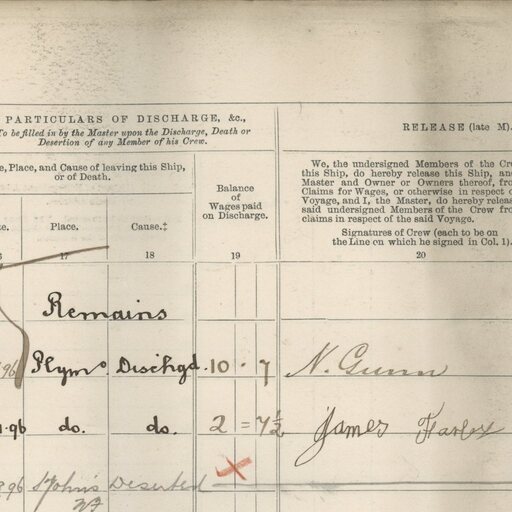 PARTICULARS OF DISCHARGE, &c.,
To be filled in by the Master upon the Discharge, Death or
Desertion of any Member of his Crew.
e, Place, and Cause of leaving this Ship,
or of Death.
te. Place. Cause.‡
Balance
of
Wages paid
on Discharge.
RELEASE (late M).
We, the undersigned Members of the Cre
this Ship, do hereby release this Ship, and
Master and Owner or Owners thereof, fro
Claims for Wages, or otherwise in respect o
Voyage, and I, the Master, do hereby releas
said undersigned Members of the Crew fro
claims in respect of the said Voyage.
Signatures of Crew (each to be on
the Line on which he signed in Col. 1).
6 17 18 19 20
Remains
96 Plymo Dischgd. 10 · 7 N. Gunn
.96 do. do. 2 = 7½ James Farley
96 St John's Deserted
NF